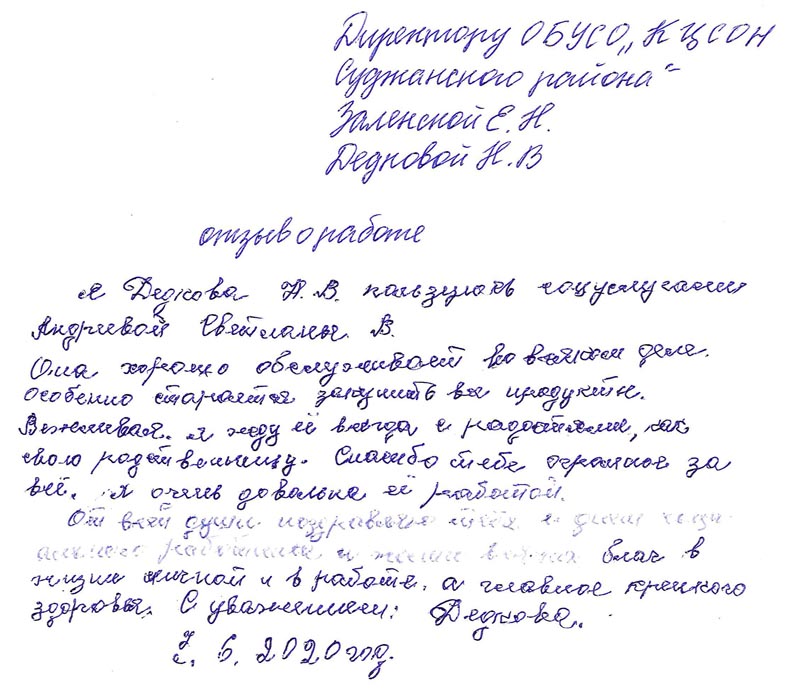 Директору ОБУСО „КЦСОН
Суджанского района"
Заленской Е. Н.
Дедковой Н. В
отзыв о работе
Я Дедкова Н. В. пользуюсь соцуслугами
Андреевой Светланы В.
Она хорошо обслуживает во всяком деле.
особенно старается закупить все продукты.
Вежливая. Я жду её всегда с радостями, как
свою родственницу. Спасибо тебе огромное за
всё. Я очень довольна её работой.
От всей души поздравляю тебя с днём соци-
ального работника и желаю всяких благ в
жизни личной и в работе, а главное крепкого
здоровья. С уважением: Дедкова.
6. 2020 год.